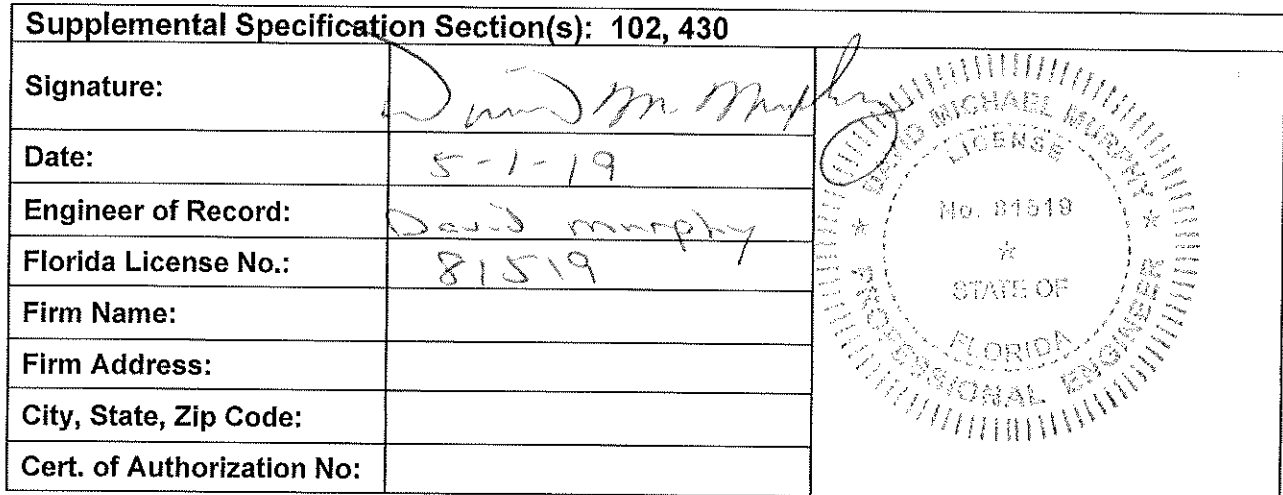 Supplemental Specification Section(s): 102, 430
Signature: David M. Murphy
Date: 5-1-19
Engineer of Record: David Murphy
Florida License No.: 81519
Firm Name:
Firm Address:
City, State, Zip Code:
Cert. of Authorization No:
DAVID MICHAEL MURPHY
LICENSE
No. 81519
STATE OF
FLORIDA
PROFESSIONAL ENGINEER